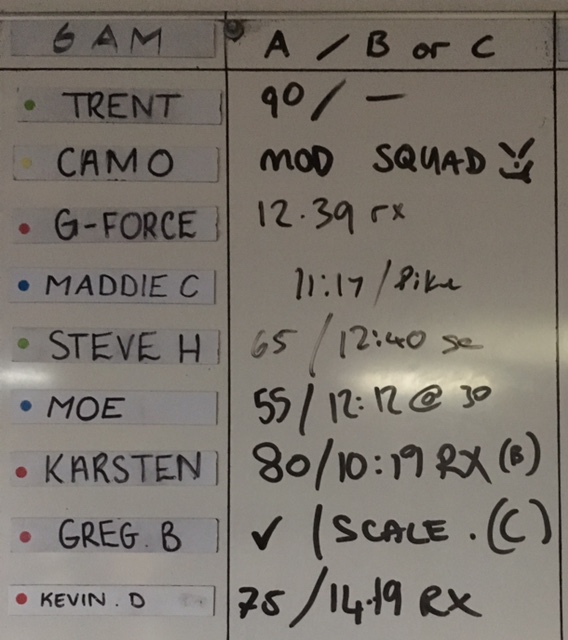 6 AM A / B or C
TRENT 90 / —
CAMO MOD SQUAD
G-FORCE 12.39 rx
MADDIE C 11:17 / Pike
STEVE H 65 / 12:40 sc
MOE 55 / 12:12 @ 30
KARSTEN 80/10:19 RX (B)
GREG. B ✓ / SCALE . (C)
KEVIN. D 75 / 14.19 RX